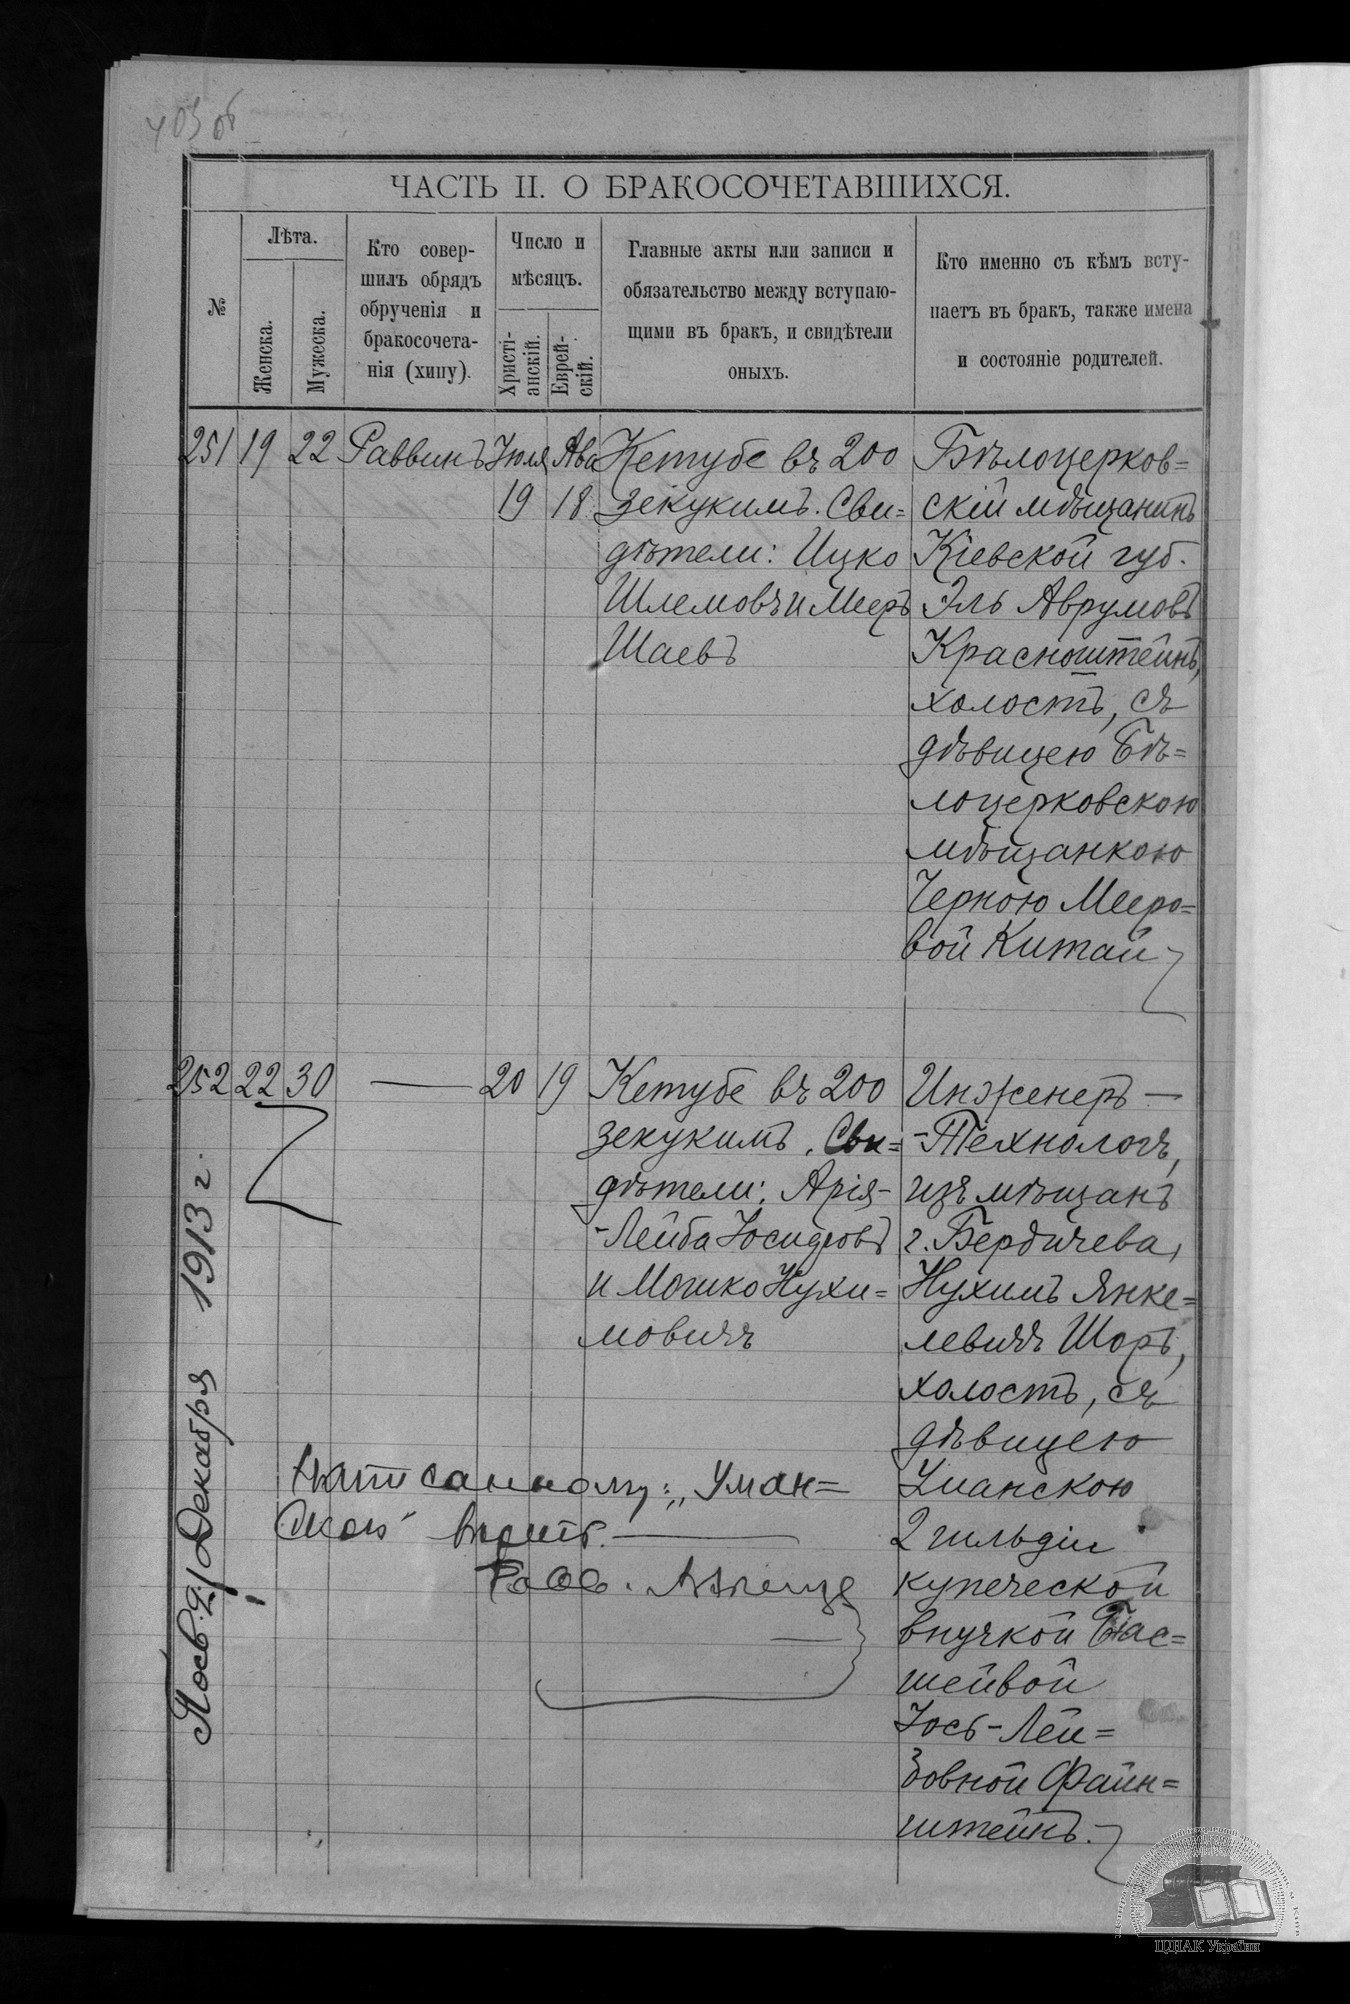 403 об
ЧАСТЬ II. О БРАКОСОЧЕТАВШИХСЯ.
№
Лѣта.
Женска.
Мужеска.
Кто совер-
шилъ обрядъ
обрученія и
бракосочета-
нія (хипу).
Число и
мѣсяцъ.
Христі-
анскій.
Еврей-
скій.
Главные акты или записи и
обязательство между вступаю-
щими въ бракъ, и свидѣтели
оныхъ.
Кто именно съ кѣмъ всту-
паетъ въ бракъ, также имена
и состояніе родителей.
251 19 22 Раввинъ Іюля Ава
19 18
Кетубе въ 200
зекукимъ. Сви=
дѣтели: Ицко
Шлемовъ и Мееръ
Шаевъ
Бѣлоцерков=
скій мѣщанинъ
Кіевской губ.
Эль Аврумовъ
Краснoштейнъ,
холостъ, съ
дѣвицею Бѣ=
лоцерковскою
мѣщанкою
Черною Мееро=
вой Китай
252 22 30 — 20 19
Кетубе въ 200
зекукимъ. Сви=
дѣтели: Арія-
-Лейба Іосифовъ
и Мошко Нухи=
мовичъ
Инженеръ —
-Технологъ,
изъ мѣщанъ
г. Бердичева,
Нухимъ Янке=
левичъ Шоръ,
холостъ, съ
дѣвицею
Уманскою
2 гильдіи
купеческой
внучкой Бас=
шейвой
Іось-Лей=
бовной Файн=
штейнъ.
написанному: „Уман=
скою" вѣрить.
Рабб.
21 Декабря 1913 г.
ЦДІАК України